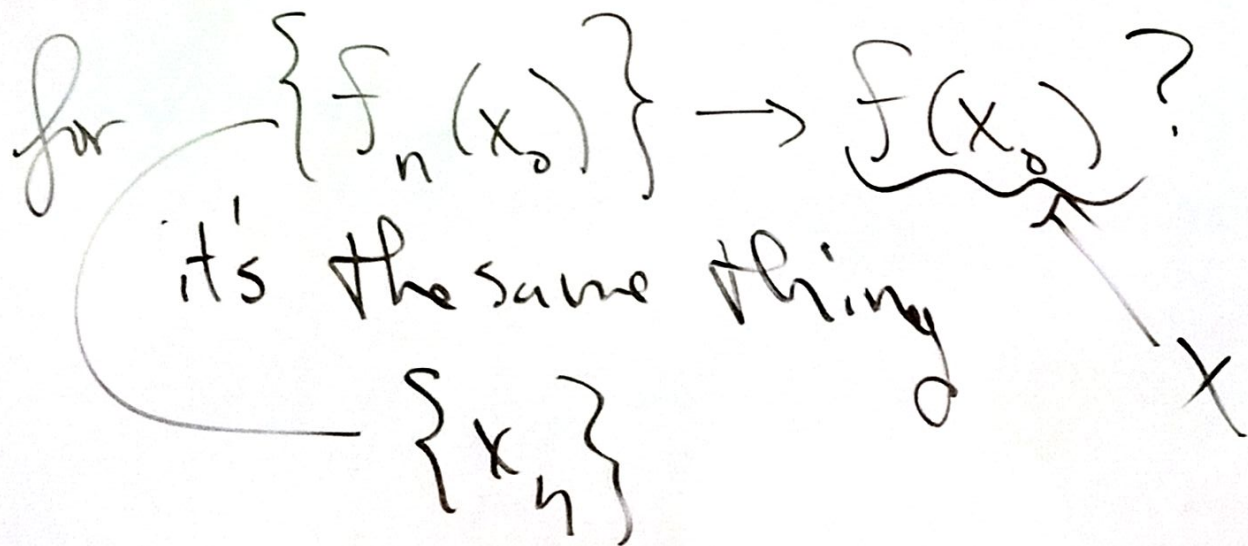 for {fₙ(x₀)} → f(x₀)?
it's the same thing
x
{xₙ}